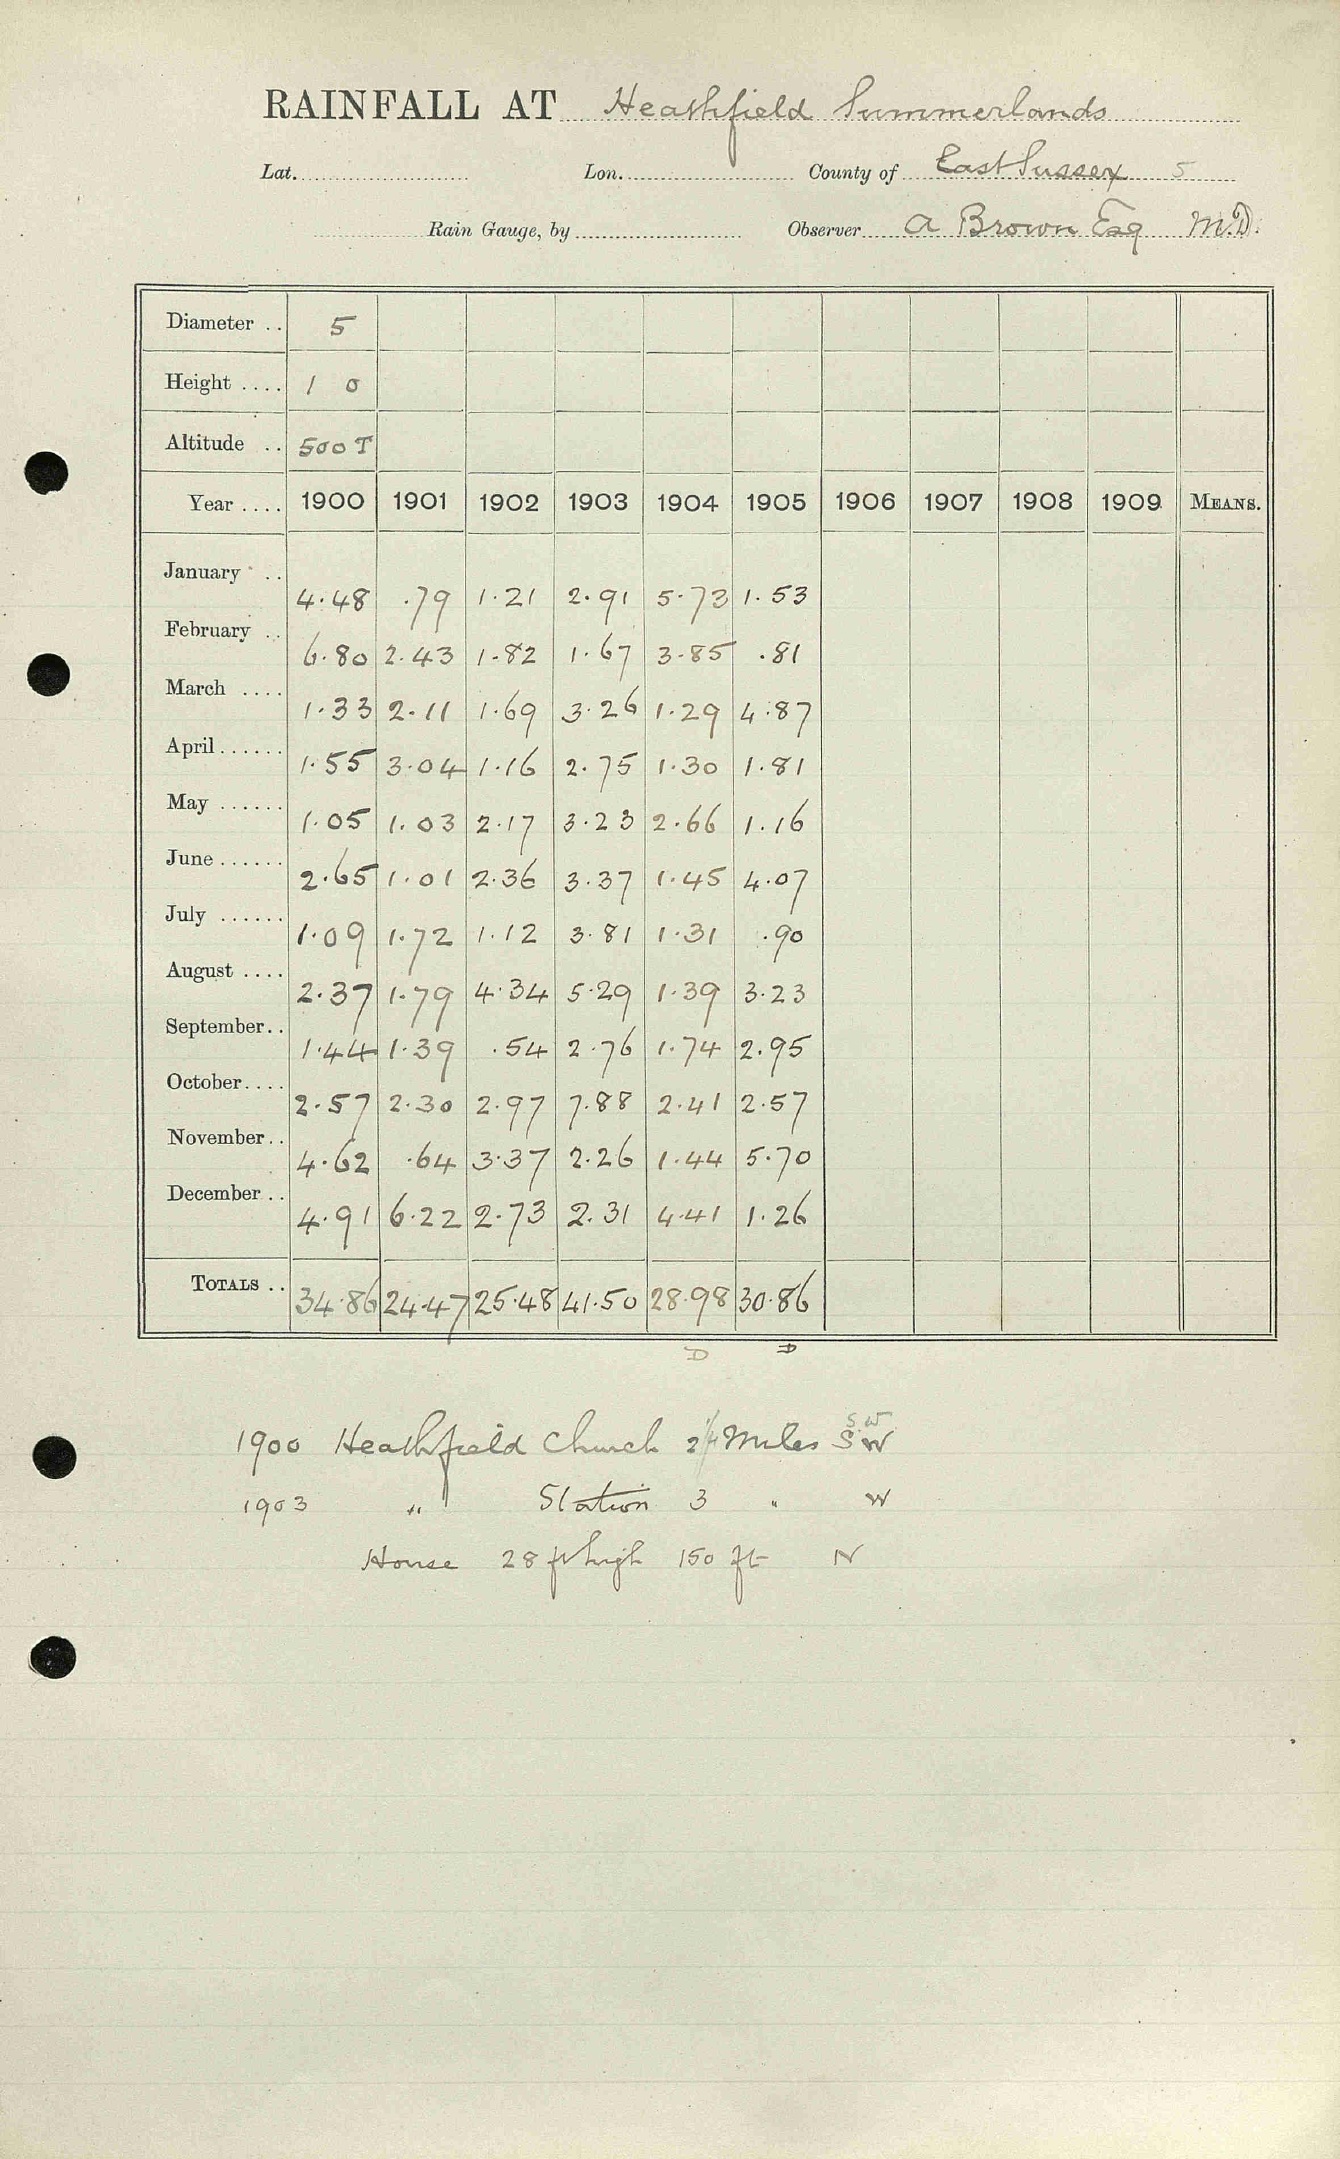 RAINFALL AT Heathfield Summerlands
Lat. Lon. County of East Sussex 5
Rain Gauge, by Observer A Brown Esq M.D.
Diameter .. 5
Height .... 1 0
Altitude .. 500 T
Year .... 1900 1901 1902 1903 1904 1905 1906 1907 1908 1909 MEANS.
January .. 4.48 .79 1.21 2.91 5.73 1.53
February .. 6.80 2.43 1.82 1.67 3.85 .81
March .... 1.33 2.11 1.69 3.26 1.29 4.87
April...... 1.55 3.04 1.16 2.75 1.30 1.81
May ...... 1.05 1.03 2.17 3.23 2.66 1.16
June...... 2.65 1.01 2.36 3.37 1.45 4.07
July ...... 1.09 1.72 1.12 3.81 1.31 .90
August .... 2.37 1.79 4.34 5.29 1.39 3.23
September.. 1.44 1.39 .54 2.76 1.74 2.95
October.... 2.57 2.30 2.97 7.88 2.41 2.57
November.. 4.62 .64 3.37 2.26 1.44 5.70
December .. 4.91 6.22 2.73 2.31 4.41 1.26
TOTALS .. 34.86 24.47 25.48 41.50 28.98 30.86
D D
S W
1900 Heathfield Church Miles S W
1903 " Station 3 " W
House 28 ft high 150 ft N